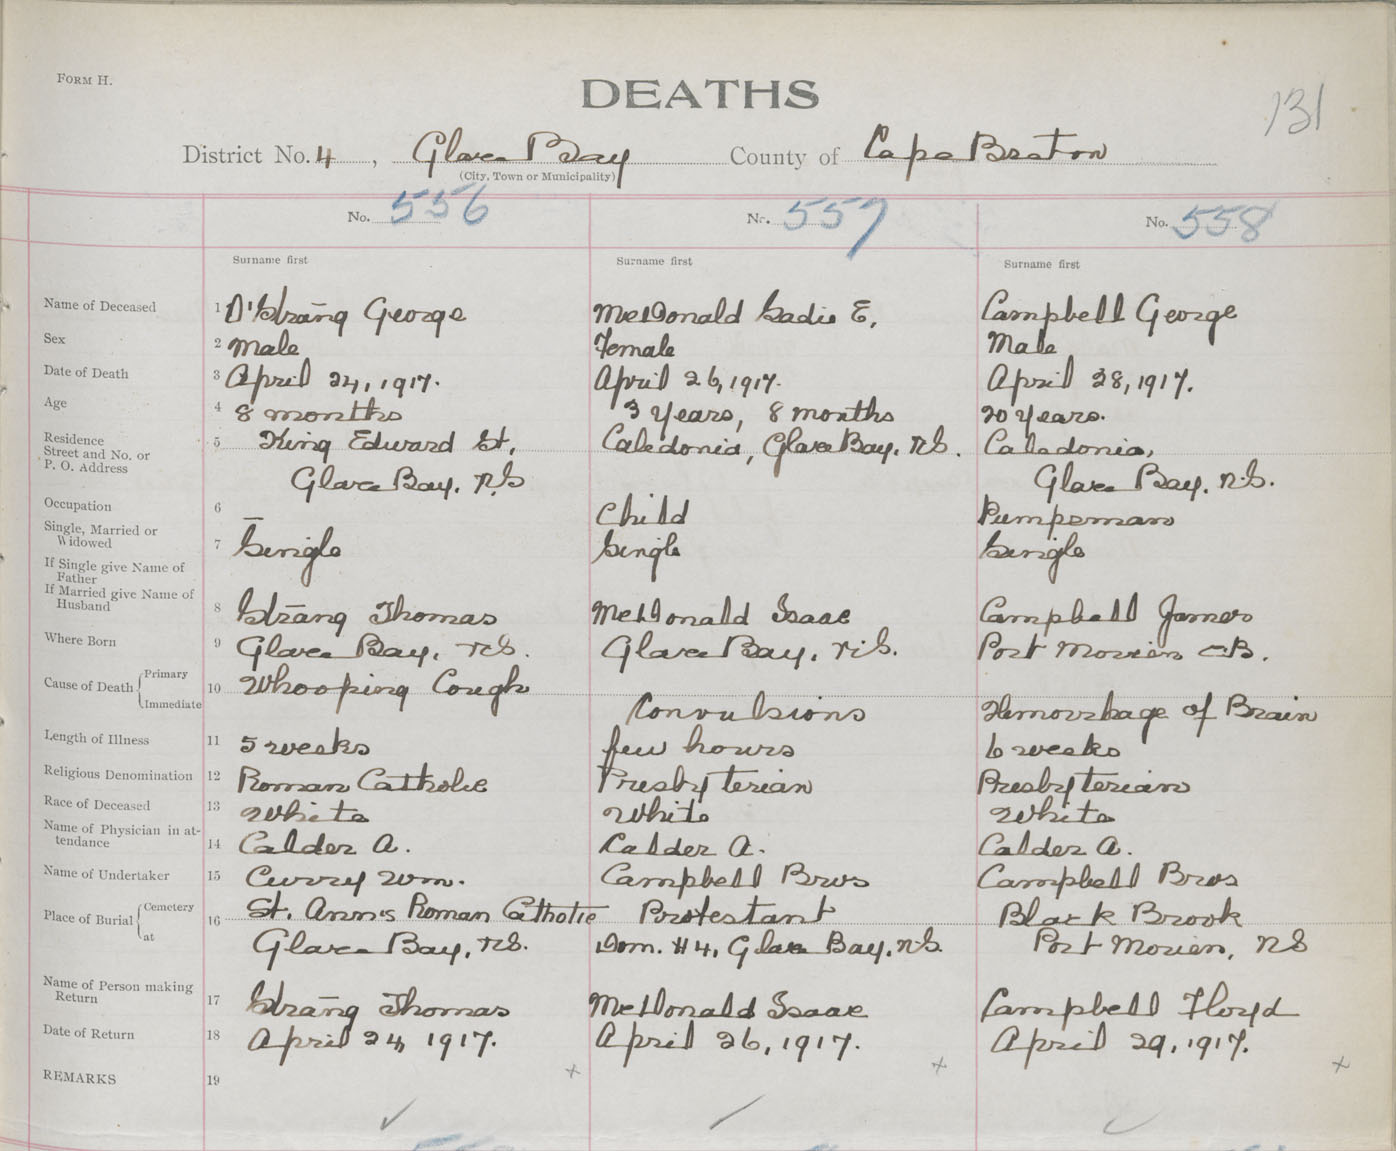 FORM H.
DEATHS
131
District No. 4, Glace Bay County of Cape Breton
(City, Town or Municipality)
No. 556 No. 557 No. 558
Surname first Surname first Surname first
Name of Deceased 1 D'Strang George McDonald Sadie E. Campbell George
Sex 2 Male Female Male
Date of Death 3 April 24, 1917. April 26, 1917. April 28, 1917.
Age 4 8 months 3 years, 8 months 20 years.
Residence 5 King Edward St, Caledonia, Glace Bay, N.S. Caledonia,
Street and No. or
P. O. Address Glace Bay, N.S Glace Bay, N.S.
Occupation 6 — Child Pumpman
Single, Married or
Widowed 7 Single Single Single
If Single give Name of
Father
If Married give Name of
Husband 8 Strang Thomas McDonald Isaac Campbell James
Where Born 9 Glace Bay, N.S. Glace Bay, N.S. Port Morien C.B.
Cause of Death Primary 10 Whooping Cough
Immediate Convulsions Hemorrhage of Brain
Length of Illness 11 5 weeks few hours 6 weeks
Religious Denomination 12 Roman Catholic Presbyterian Presbyterian
Race of Deceased 13 White White White
Name of Physician in at-
tendance 14 Calder A. Calder A. Calder A.
Name of Undertaker 15 Curry Wm. Campbell Bros Campbell Bros
Place of Burial Cemetery 16 St. Ann's Roman Catholic Protestant Black Brook
at Glace Bay, N.S. Dom. #4, Glace Bay, N.S. Port Morien, NS
Name of Person making
Return 17 Strang Thomas McDonald Isaac Campbell Floyd
Date of Return 18 April 24, 1917. April 26, 1917. April 29, 1917.
REMARKS 19